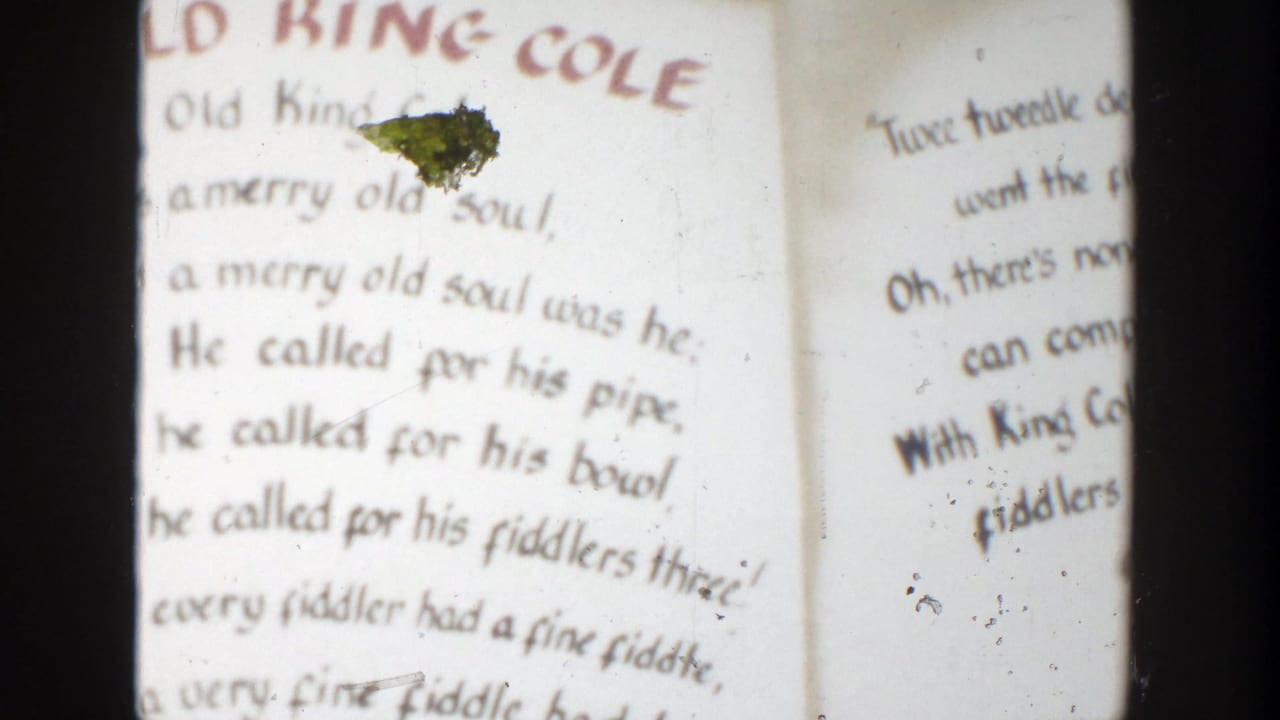 LD KING COLE
Old King
a merry old soul,
a merry old soul was he:
He called for his pipe,
he called for his bowl,
he called for his fiddlers three!
every fiddler had a fine fiddle,
a very fine fiddle had
"Twee tweedle de
went the fi
Oh, there's non
can comp
With King Col
fiddlers